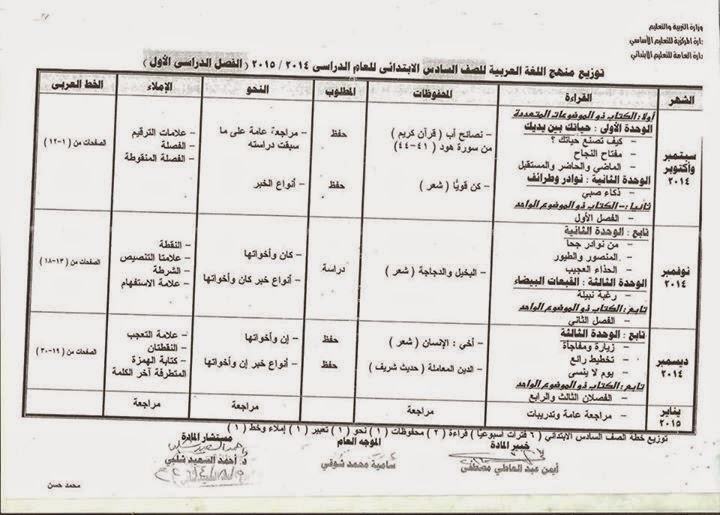 وزارة التربية والتعليم
دارة المركزية للتعليم الأساسي
دارة العامة للتعليم الابتدائي
توزيع منهج اللغة العربية للصف السادس الابتدائى للعام الدراسى ٢٠١٤ / ٢٠١٥ ( الفصل الدراسى الأول )
الشهر القراءة المحفوظات المطلوب النحو الإملاء الخط العربى
سبتمبر
وأكتوبر
٢٠١٤
أولا: الكتاب ذو الموضوعات المتعددة
الوحدة الأولى : حياتك بين يديك
- كيف تصنع حياتك ؟
- مفتاح النجاح
- الماضي والحاضر والمستقبل
الوحدة الثانية : نوادر وطرائف
- ذكاء صبي
ثانيا:- الكتاب ذو الموضوع الواحد
- الفصل الأول
- نصائح أب ( قرآن كريم )
من سورة هود ( ٤١-٤٤)
- كن قويًا ( شعر )
حفظ
حفظ
- مراجعة عامة على ما
سبقت دراسته
- أنواع الخبر
- علامات الترقيم
- الفصلة
- الفصلة المنقوطة
الصفحات من ( ١-١٢)
نوفمبر
٢٠١٤
تابع : الوحدة الثانية
- من نوادر جحا
- المنصور والطيور
- الحذاء العجيب
الوحدة الثالثة : القبعات البيضاء
- رغبة نبيلة
تابع: الكتاب ذو الموضوع الواحد
- الفصل الثاني
- البخيل والدجاجة ( شعر )
دراسة
- كان وأخواتها
- أنواع خبر كان وأخواتها
- النقطة
- علامتا التنصيص
- الشرطة
- علامة الاستفهام
الصفحات من ( ١٣-١٨)
ديسمبر
٢٠١٤
تابع : الوحدة الثالثة
- زيارة ومفاجأة
- تخطيط رائع
- يوم لا ينسى
تابع: الكتاب ذو الموضوع الواحد
- الفصلان الثالث والرابع
- أخي : الإنسان ( شعر )
- الدين المعاملة ( حديث شريف )
حفظ
حفظ
- إن وأخواتها
- أنواع خبر إن وأخواتها
- علامة التعجب
- النقطتان
- كتابة الهمزة
المتطرفة آخر الكلمة
الصفحات من ( ١٩-٣٠)
يناير
٢٠١٥
- مراجعة عامة وتدريبات
مراجعة
مراجعة
مراجعة
توزيع خطة الصف السادس الابتدائي ( ٦ فترات أسبوعيا ) قراءة ( ٢ ) محفوظات ( ١ ) نحو ( ١ ) تعبير ( ١ ) إملاء وخط ( ١ )
خبير المادة
أيمن عبد العاطي مصطفى
الموجه العام
سامية محمد شوقي
مستشار المادة
د. أحمد السعيد شلبي
محمد حسن